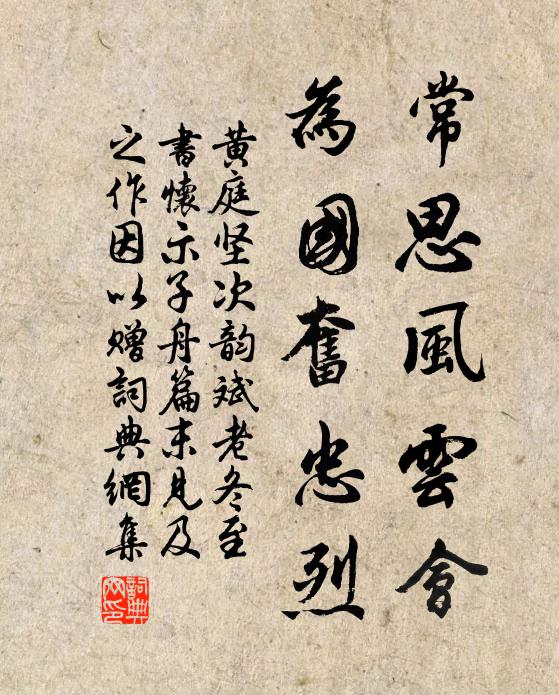 常思風雲會
為國奮忠烈
黄庭坚次韵斌老冬至
書懷示子舟篇末見及
之作因以赠詞典網集
詞典
网印